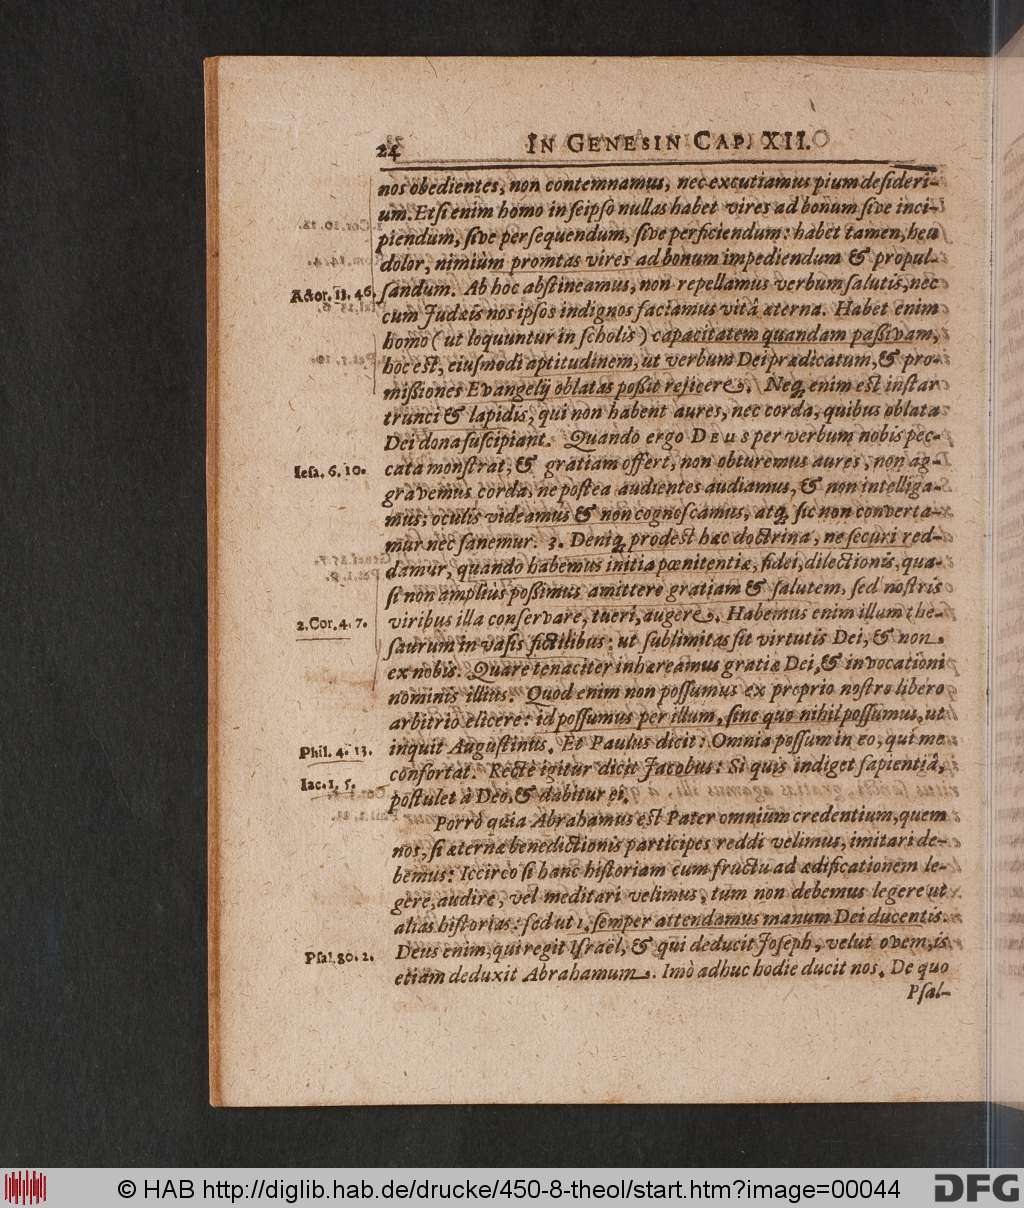 24 IN GENESIN CAP. XII.
nos obedientes, non contemnamus, nec excutiamus pium desideri-
um. Etsi enim homo in seipso nullas habet vires ad bonum sive inci-
piendum, sive persequendum, sive perficiendum: habet tamen, heu
dolor, nimiùm promtas vires ad bonum impediendum & propul-
Actor. 13. 46. sandum. Ab hoc abstineamus, non repellamus verbum salutis, nec
cum Judæis nos ipsos indignos faciamus vitâ æterna. Habet enim
homo (ut loquuntur in scholis) capacitatem quandam passivam,
hoc est, eiusmodi aptitudinem, ut verbum Dei prædicatum, & pro-
missiones Evangelij oblatas possit rejicere. Neq, enim est instar
trunci & lapidis, qui non habent aures, nec corda, quibus oblata
Dei dona suscipiant. Quando ergo DEUS per verbum nobis pec-
Iesa. 6. 10. cata monstrat, & gratiam offert, non obturemus aures, non ag-
gravemus corda, ne postea audientes audiamus, & non intelliga-
mus; oculis videamus & non cognoscamus, atq, sic non converta-
mur nec sanemur. 3. Deniq, prodest hæc doctrina, ne securi red-
damur, quando habemus initia pœnitentiæ, fidei, dilectionis, qua-
si non ampliùs possimus amittere gratiam & salutem, sed nostris
2. Cor. 4. 7. viribus illa conservare, tueri, augere. Habemus enim illum the-
saurum in vasis fictilibus: ut sublimitas sit virtutis Dei, & non
ex nobis. Quare tenaciter inhæreamus gratiæ Dei, & invocationi
nominis illius. Quod enim non possumus ex proprio nostro libero
arbitrio elicere: id possumus per illum, sine quo nihil possumus, ut
Phil. 4. 13. inquit Augustinus. Et Paulus dicit: Omnia possum in eo, qui me
Iac. 1. 5. confortat. Rectè igitur dicit Jacobus: Si quis indiget sapientiâ,
postulet à Deo, & dabitur ei.
Porrò quia Abrahamus est Pater omnium credentium, quem
nos, si æternæ benedictionis participes reddi velimus, imitari de-
bemus: Iccircò si hanc historiam cum fructu ad ædificationem le-
gere, audire, vel meditari velimus, tum non debemus legere ut
alias historias: sed ut 1. semper attendamus manum Dei ducentis.
Psal. 80. 2. Deus enim, qui regit Israël, & qui deducit Joseph, velut ovem, is
etiam deduxit Abrahamum. Imò adhuc hodie ducit nos. De quo
Psal-
© HAB http://diglib.hab.de/drucke/450-8-theol/start.htm?image=00044
DFG